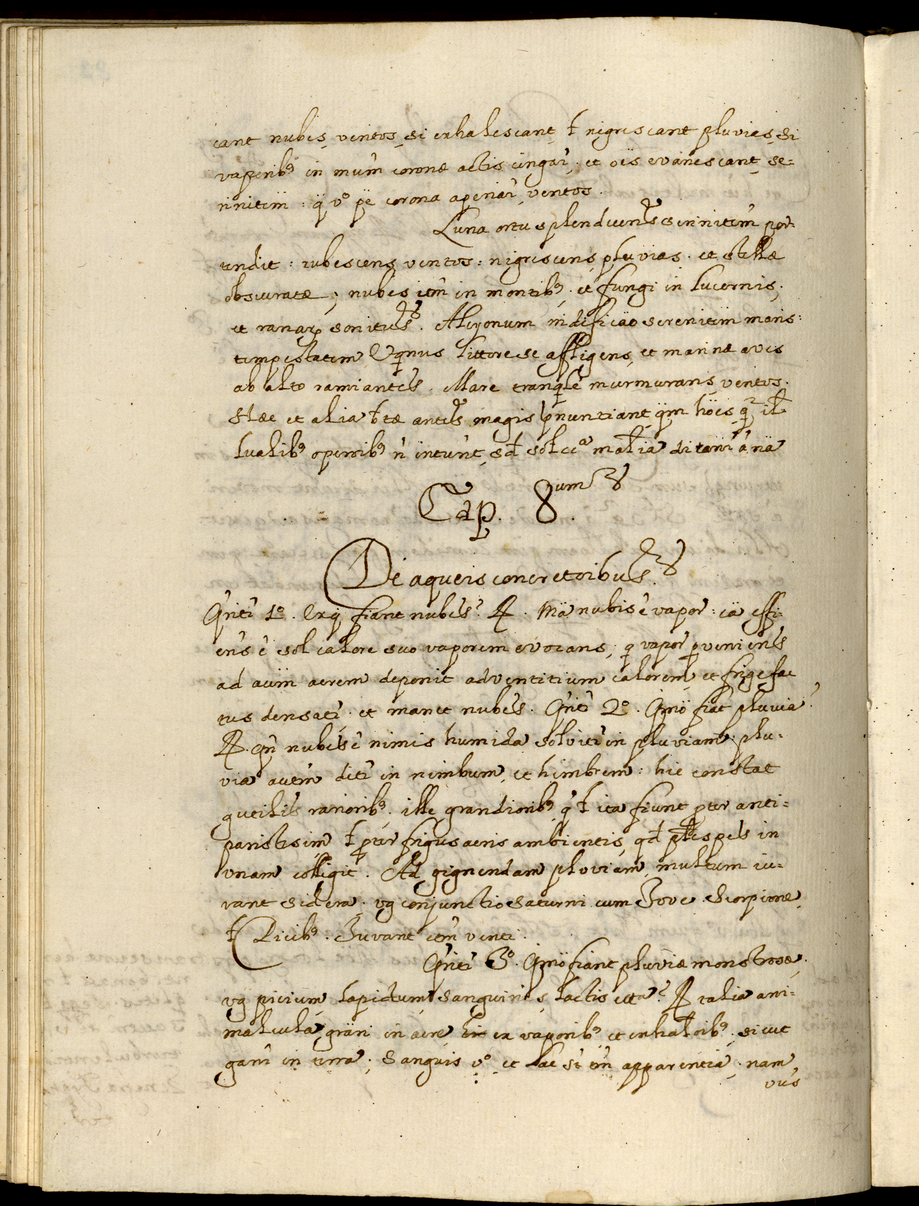 cant nubes ventos, si exhalescant ł nigrescant pluvias, si
vaporib9 in mum̃ coronæ actis cingãr. et oẽs evanescant se=
renitem̃: q̃ v.º p̃e corona aperiãr ventos.
Luna ortu splendicens serenitem̃ por=
tendit: rubescens ventos: nigrescens pluvias. et stellæ
obscuratæ; nubes etm̃ in montib9. et fungi in lucernis,
et ranarũ sonitus. Alcyonum nidificão serenitem̃ maris:
tempestatem Cygnus littore se affligens, et marinæ aves
ab alto remeantes. Mare tranqle murmurans ventos.
Hæc et alia ł tæ magis p̃nuntiant q̃m hoẽs q̃
tualib9 operib9 ñ intẽnt, sd̃ sol materia
Cap. 8.um
De aqueis concretoribus
Qrit̃r 1.º Ex q fiant nubes? R. Mã nubis ẽ vapor: cã effi=
ens ẽ sol calore suo vaporem evocans; q vapor pveniens
ad aerem deponit adventitium calorem, et frigefac
tus densatr̃. et manet nubes. Qrit̃r 2.º Qmõ fiat pluvia?
R. qñ nubes ẽ nimis humida solvitr̃ in pluviam: plu=
via autem̃ ditr̃ in nimbum, et himbrem: hic constat
guttulis rariorib9. ille grandiorib9 q ł ita fiunt ptr anti=
paristesim ł ptr frigus aeris ambientis, qd̃ ptes spels in
vnam colligit. Ad gignendam pluviam multum iu=
vant sidera. vg conjunctio Saturni cum Jove Scorpione,
ł Piscib9. Juvant etm̃ venti.
Qrit̃r 3.º Qmõ fiant pluviæ monstrosæ,
vg piscium, lapidum, sanguinis, lactis etta? R talia ani=
malcula grãri in aere ex vaporib9 et exhalõib9. sicut
gãnr in terra; Sanguis v.º et Lac st̃ tm̃ apparentia. nam